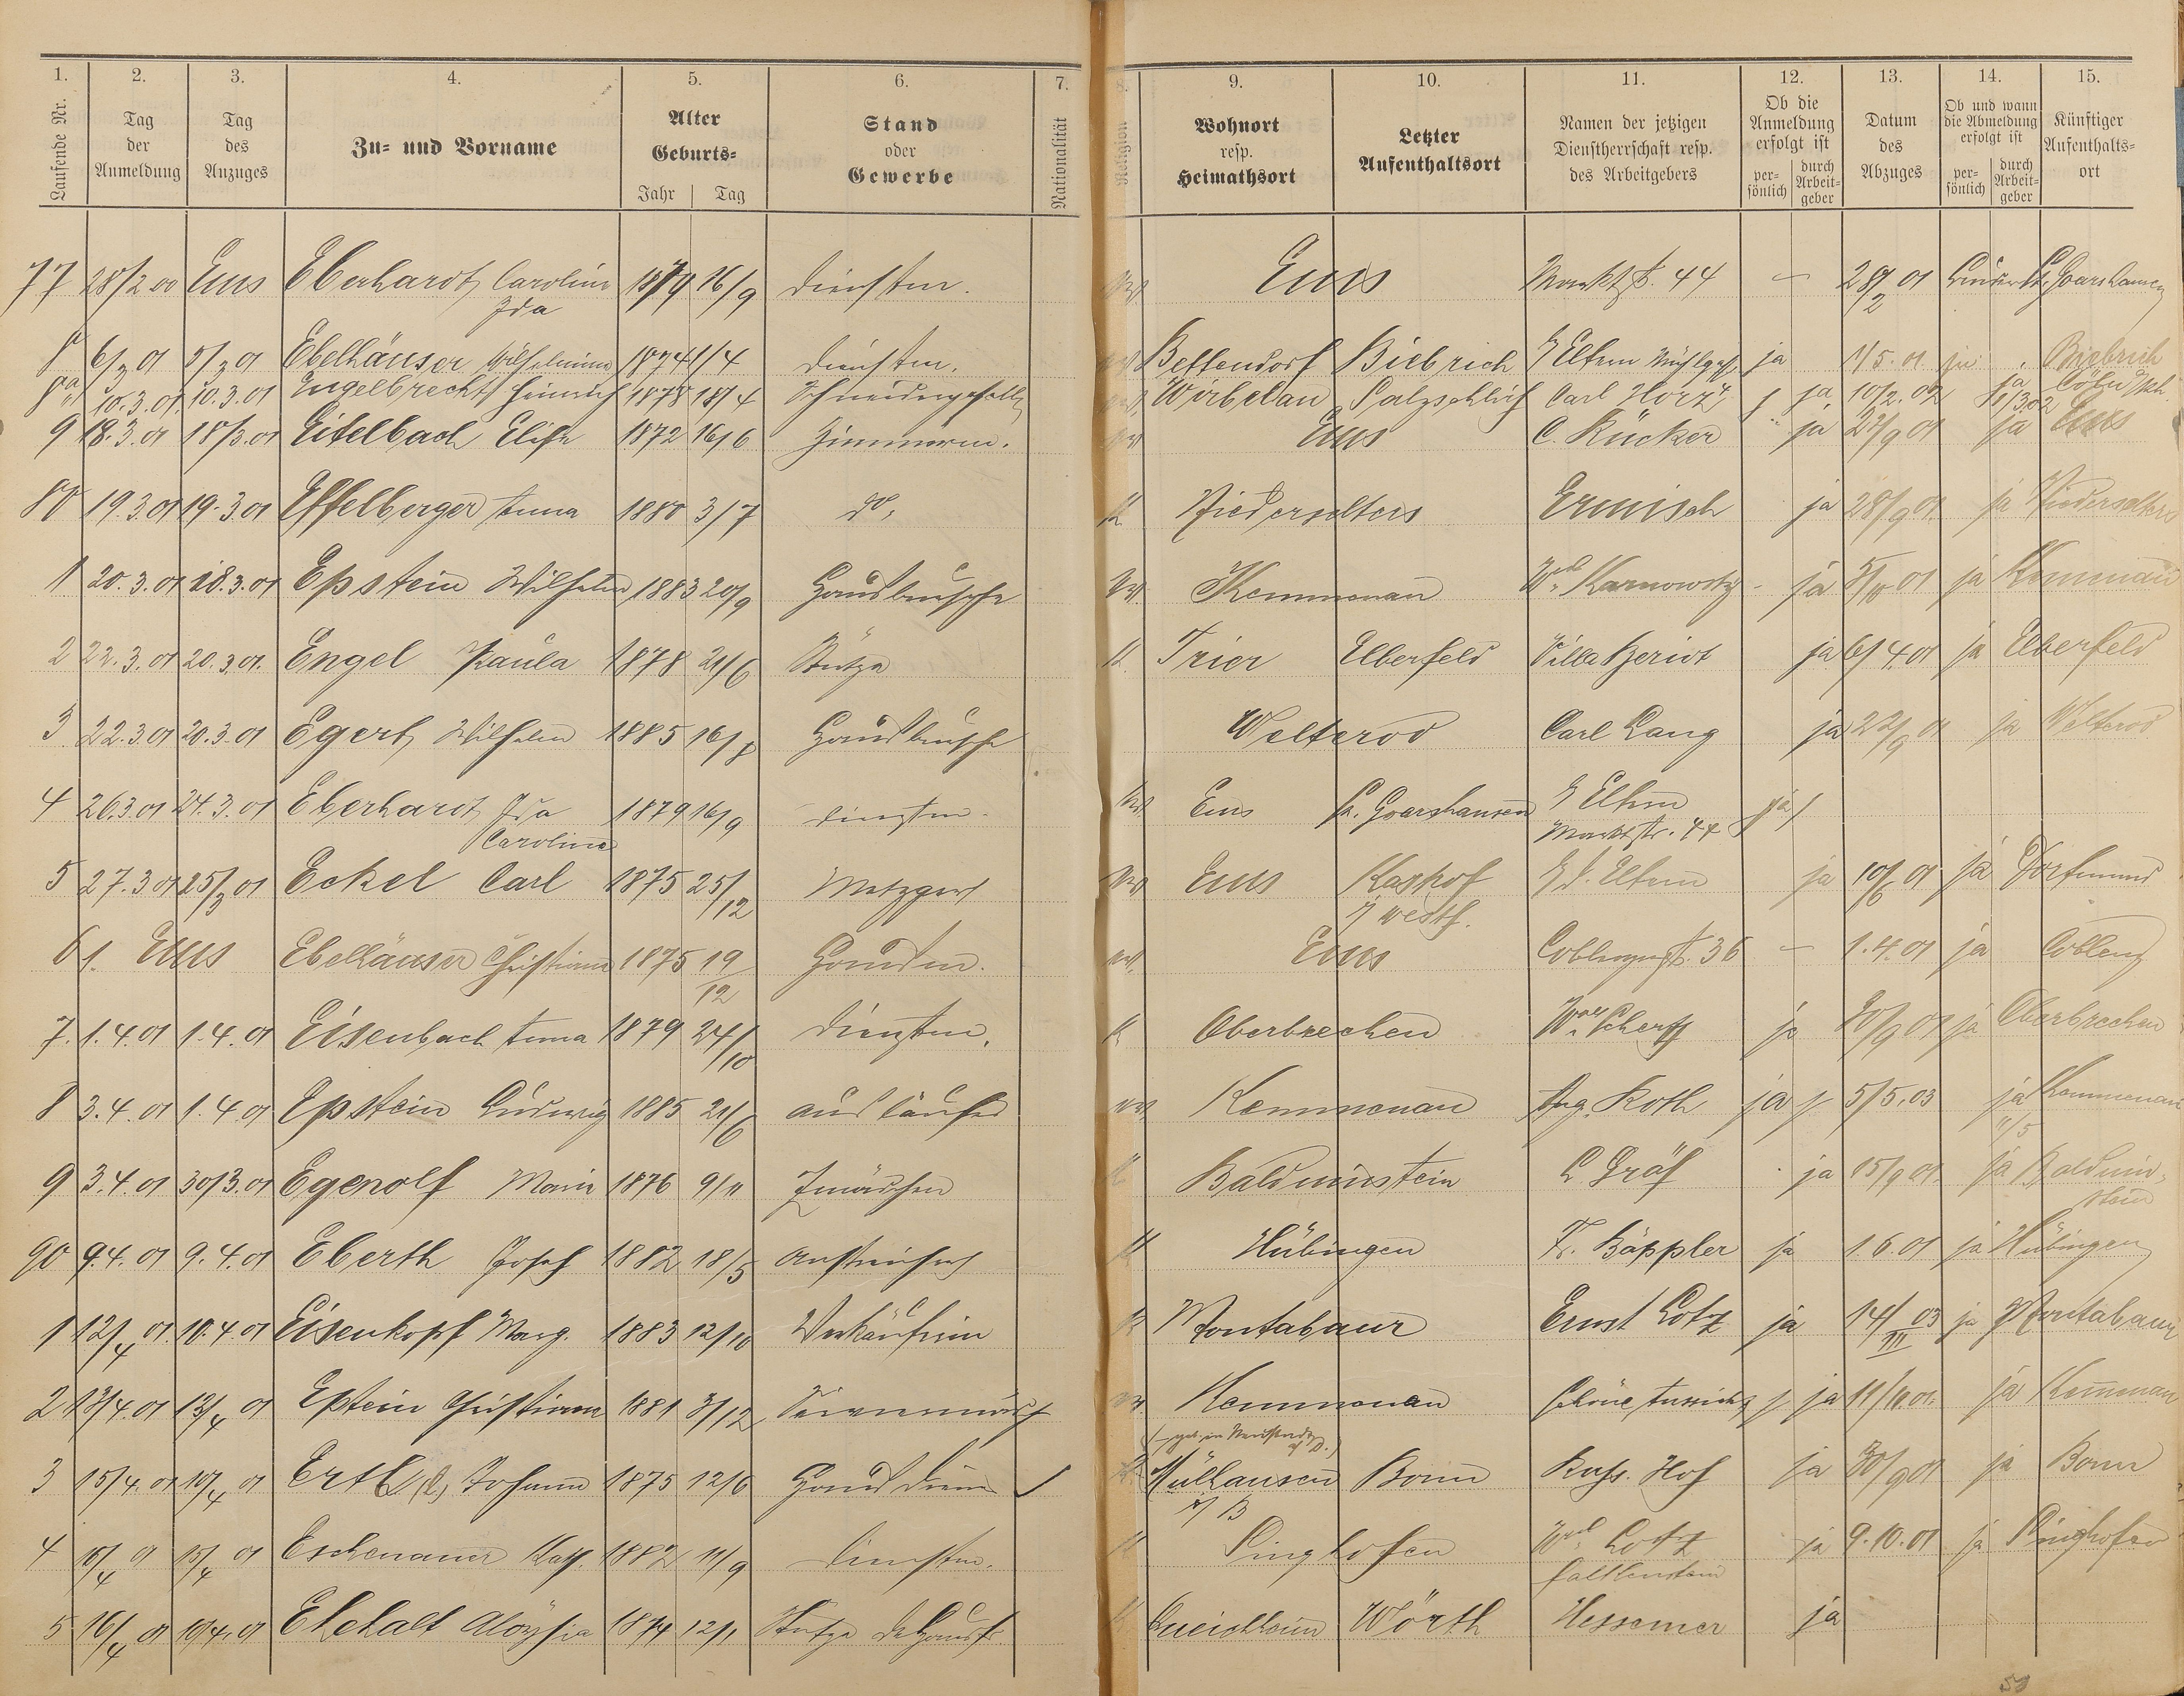 1. 2. 3. 4. 5. 6. 7. 8. 9. 10. 11. 12. 13. 14. 15.
Laufende Nr. Tag der Anmeldung Tag des Anzuges Zu- und Vorname Alter Geburts- Jahr Tag Stand oder Gewerbe Nationalität Religion Wohnort resp. Heimathsort Letzter Aufenthaltsort Namen der jetzigen Dienstherrschaft resp. des Arbeitgebers Ob die Anmeldung erfolgt ist persönlich durch Arbeitgeber Datum des Abzuges Ob und wann die Abmeldung erfolgt ist persönlich durch Arbeitgeber Künftiger Aufenthaltsort
77 28/2 00 Ems Eberhardt Carolina 1879 16/9 Dienstm. Ems Marktst. 44 – 28/2 01 St. Goarshausen
Ida
8 6/3 01 5/3 01 Ebelhäuser Wilhelmine 1874 1/4 Dienstm. Bettendorf Biebrich Eltern ja 1/5. 01 ja Biebrich
8a 10.3.01. 10.3.01 Engelbrecht Heinrich 1878 18/4 Schneidergeselle Wirbelau Salzschlirf Carl Horz ja 10/2.02 ja Cöln
9 18.3.01 18/3.01 Eitelbach Elise 1872 16/6 Zimmerm. Ems C. Rücker ja 27/9 01 ja Ems
80 19.3.01 19.3.01 Effelberger Anna 1880 3/7 do. Niederselters Ermisch ja 28/9 01. ja Niederselters
1 20.3.01 18.3.01 Epstein Wilhelm 1883 20/9 Hausbursche Kemmenau Karnowsky ja 5/10 01 ja Kemenau
2 22.3.01 20.3.01. Engel Paula 1878 21/6 Stütze Trier Elberfeld Villa Beriot ja 6/4.01 ja Elberfeld
3 22.3.01 20.3.01 Egert Wilhelm 1885 16/8 Hausbursche Welterod Carl Lang ja 22/9 01 ja Welterod
4 26.3.01 24.3.01 Eberhardt Ida 1879 16/9 Dienstm. Ems St. Goarshausen Eltern ja
Carolina Marktstr. 44
5 27.3 01 25/3 01 Eckel Carl 1875 25/12 Metzger Ems Eltern ja 10/6 01 ja Dortmund
i/ Westf.
6 1. Ems Ebelhäuser Christiane 1875 19/12 Ems Coblenzerst. 36 – 1.4.01 ja Coblenz
7. 1.4.01 1.4.01 Eisenbach Anna 1879 24/10 Dienstm. Oberbrechen ja 20/9 01 ja Oberbrechen
8 3.4.01 1.4.01 Epstein Ludwig 1885 21/6 Ausläufer Kemmenau Aug. Roth ja 5/5.03 ja Kemmenau
11/5
9 3.4.01 30/3.01 Egenolf Marie 1876 9/11 Zmädchen Balduinstein L Gräf ja 15/9 01. ja Balduinstein
90 9.4.01 9.4.01 Eberth Josef 1882 18/5 Anstreicher Hübingen Fr. Bäppler ja 1.6.01 ja Hübingen
1 12/4 01. 10.4.01 Eisenkopf Marg. 1883 12/10 Verkäuferin Montabaur Ernst Lotz ja 14/III 03 ja Montabaur
2 13/4.01 12/4 01 Eptein Christiane 1881 3/12 Kemmenau Schöne Aussicht ja 11/10.01. ja Kemenau
3 15/4.01 10/4 01 Ertl Johann 1875 12/6 Hausdiener Mülhausen Bonn Russ. Hof ja 30/9 01 ja Bonn
4 15/4 01 15/4 01 Eschenauer Kath. 1882 11/9 Dienstm. Singhofen Lotz ja 9.10.01 ja Singhofen
Falkenstein
5 16/4 01 10/4.01 Ehehalt Aloysia 1874 12/1 Stütze d. Hausfr. Queichheim Wörth Hessemer ja